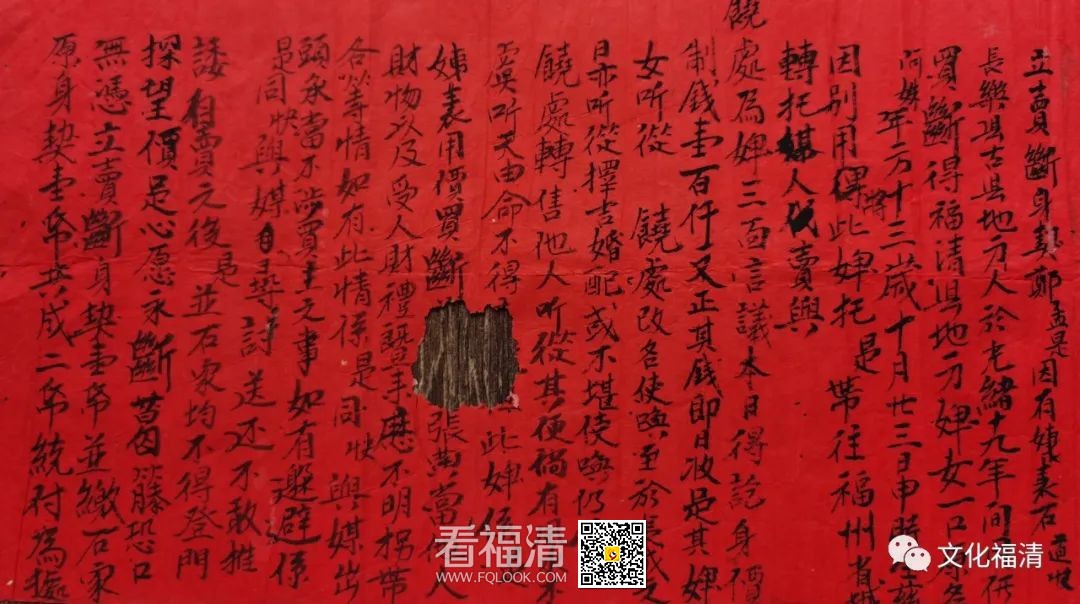 立賣斷身契鄭孟是因有姨表石道
長樂县古县地方人於光緒十九年间
買斷得福清县地方婢女一口
年方十三歲十月廿三日申時
因别用將此婢托是帶往福州省城
轉托媒人代賣與
饒處為婢三面言議本日得訖身價
制錢壹百仟文正其錢即日收足其婢
女听從饒處改名使喚至於長成
日亦听從擇吉婚配或不堪使喚仍
饒處轉售他人听從其便禍有
虞听天由命不得此婢
姨表用價買斷張
財物以及受人財禮來應不明拐帶
各等情如有此情係是同 與媒出
頭永當不涉買主之事如有避係
是同 與媒自尋討送还不敢推
諉自賣之後是並石家均不得登門
探望價足心愿永斷葛藤恐口
無憑立賣斷身契壹帋並繳石家
原身契壹帋共成二帋統付為據
看福清
WWW.FQLOOK.COM
文化福清